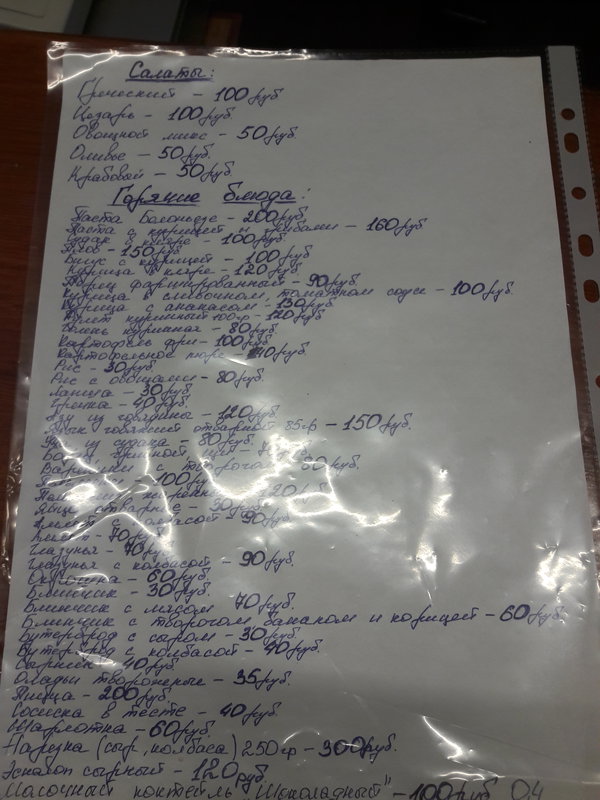 Салаты:
Греческий – 100руб
Цезарь – 100руб.
Овощной микс – 50руб.
Оливье – 50руб.
Крабовый – 50руб.
Горячие блюда:
Паста Болоньезе – 200руб.
Паста с курицей и грибами – 160руб
Судак в кляре – 100руб.
Плов – 150руб
с курицей – 100руб
Курица в кляре – 120руб.
Перец фаршированный – 90руб.
Курица в сливочном, томатном соусе – 100руб.
Курица с ананасом – 130руб
куриный 100гр – 120руб
Печень куриная – 80руб.
Картофель фри – 100руб.
Картофельное пюре – руб.
Рис – 30руб.
Рис с овощами – 80руб.
Лапша – 30руб.
Гречка – 40руб.
Азу из говядины – 120руб.
Язык говяжий отварной 85гр – 150руб.
Уха из судака – 80руб.
Вареники с творогом 80руб.
– 100руб
Яйцо отварное – 30руб.
Омлет с колбасой – 90руб.
Омлет – 70руб.
Глазунья – 70руб.
Глазунья с колбасой – 90руб.
Окрошка – 60руб.
Блинчик – 30руб.
Блинчик с мясом 70руб.
Блинчик с творогом, бананом и корицей – 60руб.
Бутерброд с сыром – 30руб.
Бутерброд с колбасой – 40руб.
Сырники 40руб
Оладьи творожные – 35руб.
Пицца – 200руб
Сосиска в тесте – 40руб.
Шарлотка – 60руб.
Нарезка (сыр, колбаса) 250гр – 300руб.
Эскалоп сырный – 120руб.
Молочный коктейль "Шоколадный" – 100руб 0,4